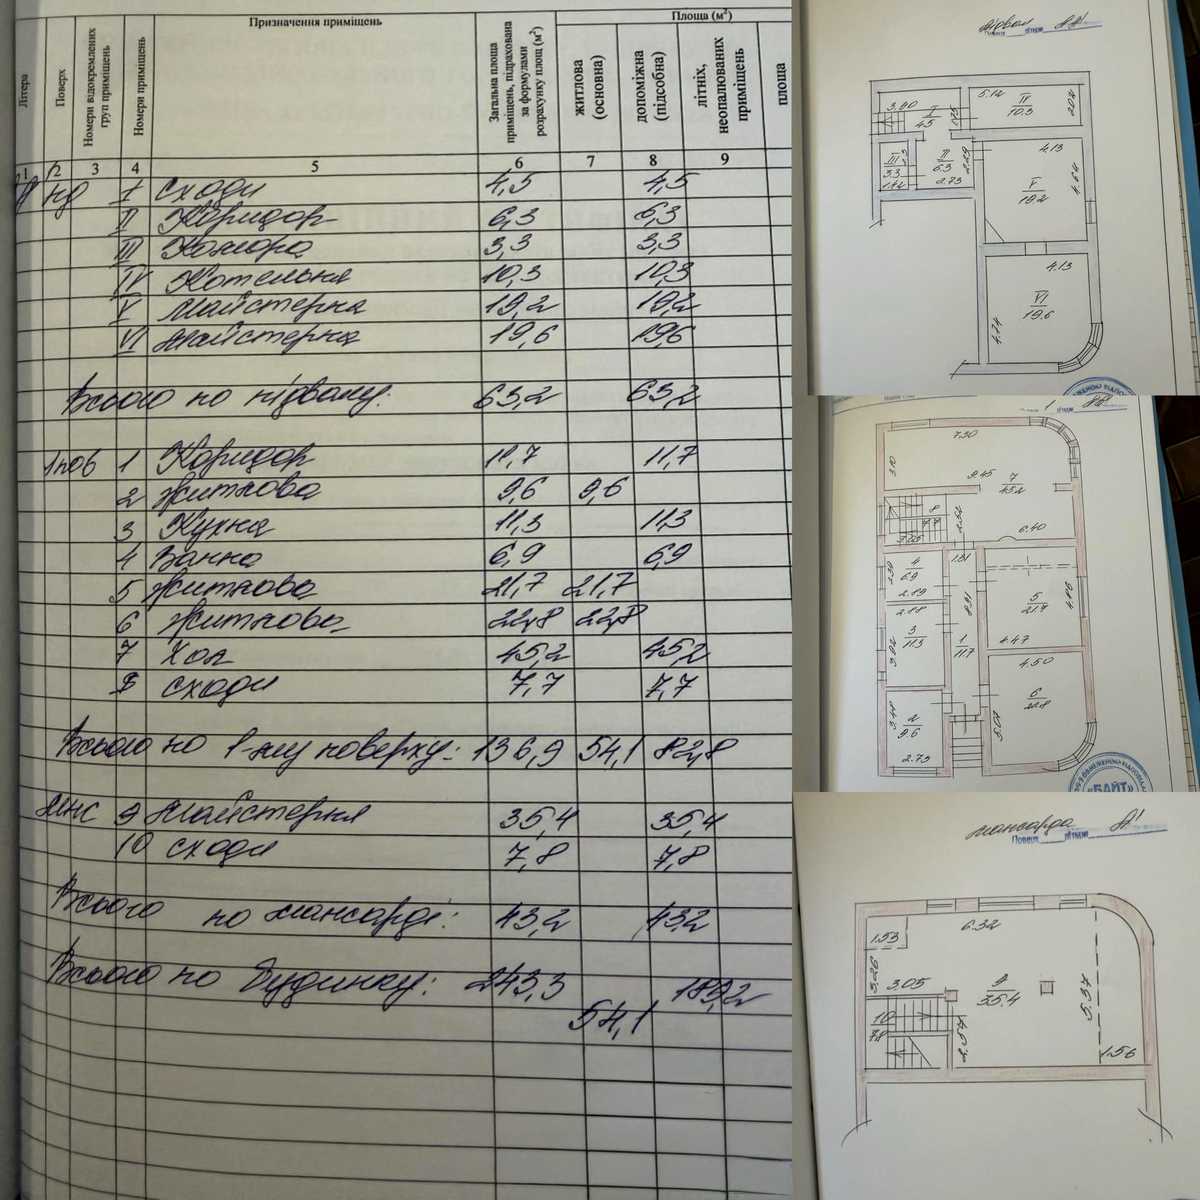 Літера
Поверх
Номери відокремлених груп приміщень
Номери приміщень
Призначення приміщень
Загальна площа приміщень, підрахована за формулами розрахунку площ (м²)
Площа (м²)
житлова (основна)
допоміжна (підсобна)
літніх, неопалюваних приміщень
площа
1 2 3 4 5 6 7 8 9
пд I сходи 4,5 4,5
II Коридор 6,3 6,3
III Комора 3,3 3,3
IV Котельня 10,3 10,3
V Майстерня 19,2 19,2
VI Майстерня 19,6 19,6
Всього по підвалу: 63,2 63,2
1 пов 1 Коридор 11,7 11,7
2 житлова 9,6 9,6
3 Кухня 11,3 11,3
4 Ванна 6,9 6,9
5 житлова 21,7 21,7
6 житлова 22,8 22,8
7 Хол 45,2 45,2
8 сходи 7,7 7,7
Всього по 1-му поверху: 136,9 54,1 82,8
мнс 9 Майстерня 35,4 35,4
10 сходи 7,8 7,8
Всього по мансарді: 43,2 43,2
Всього по будинку: 243,3 189,2
54,1
підвал
3.40
I
4.5
5.12
IV
10.3
2.02
III
3.3
1.42
II
6.3
2.73
4.13
V
19.2
4.64
4.13
VI
19.6
4.74
1
7.30
3.10
9.45
7
45.2
8
7.7
2.52
6.40
4
6.9
2.39
2.89
1.31
2.88
3
11.3
3.92
8.91
1
11.7
5
21.7
4.86
4.47
4.50
6
22.8
5.07
3.48
2
9.6
2.73
«БАЙТ»
мансарда
6.32
1.53
3.26
3.05
9
35.4
5.37
10
7.8
2.54
1.56